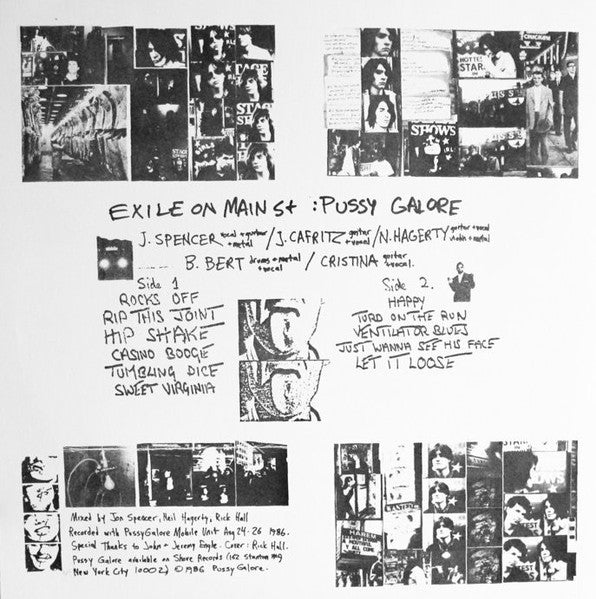 CHICKEN
HOTTEST
STAR
STAGE
SHOWS
EXILE ON MAIN St : PUSSY GALORE
J. SPENCER vocal + guitar + metal / J. CAFRITZ guitar + vocal / N. HAGERTY guitar + vocal + metal
B. BERT drums + metal + vocal / CRISTINA guitar + vocal.
Side 1
ROCKS OFF
RIP THIS JOINT
HIP SHAKE
CASINO BOOGIE
TUMBLING DICE
SWEET VIRGINIA
Side 2.
HAPPY
TURD ON THE RUN
VENTILATOR BLUES
JUST WANNA SEE HIS FACE
LET IT LOOSE
Mixed by Jon Spencer, Neil Hagerty, Rick Hall
Recorded with Pussy Galore Mobile Unit Aug 24·26 1986.
Special Thanks to John + Jeremy Engle. Cover: Rick Hall.
Pussy Galore available on Shove Records (162 Stanton #9
New York City 10002) ©1986 Pussy Galore.